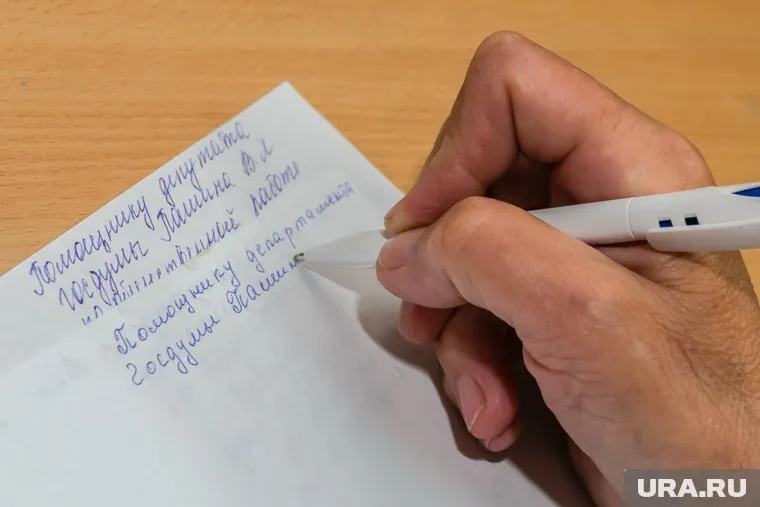 Помощнику депутата
Госдумы Пашина В.Л
по общественной работе
Помощнику департамента
Госдумы Пашин
URA.RU